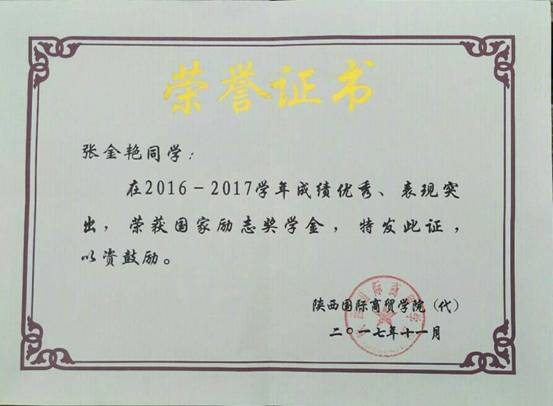 荣誉证书
张金艳同学：
在2016－2017学年成绩优秀、表现突
出，荣获国家励志奖学金，特发此证，
以资鼓励。
陕西国际商贸学院（代）
二〇一七年十一月